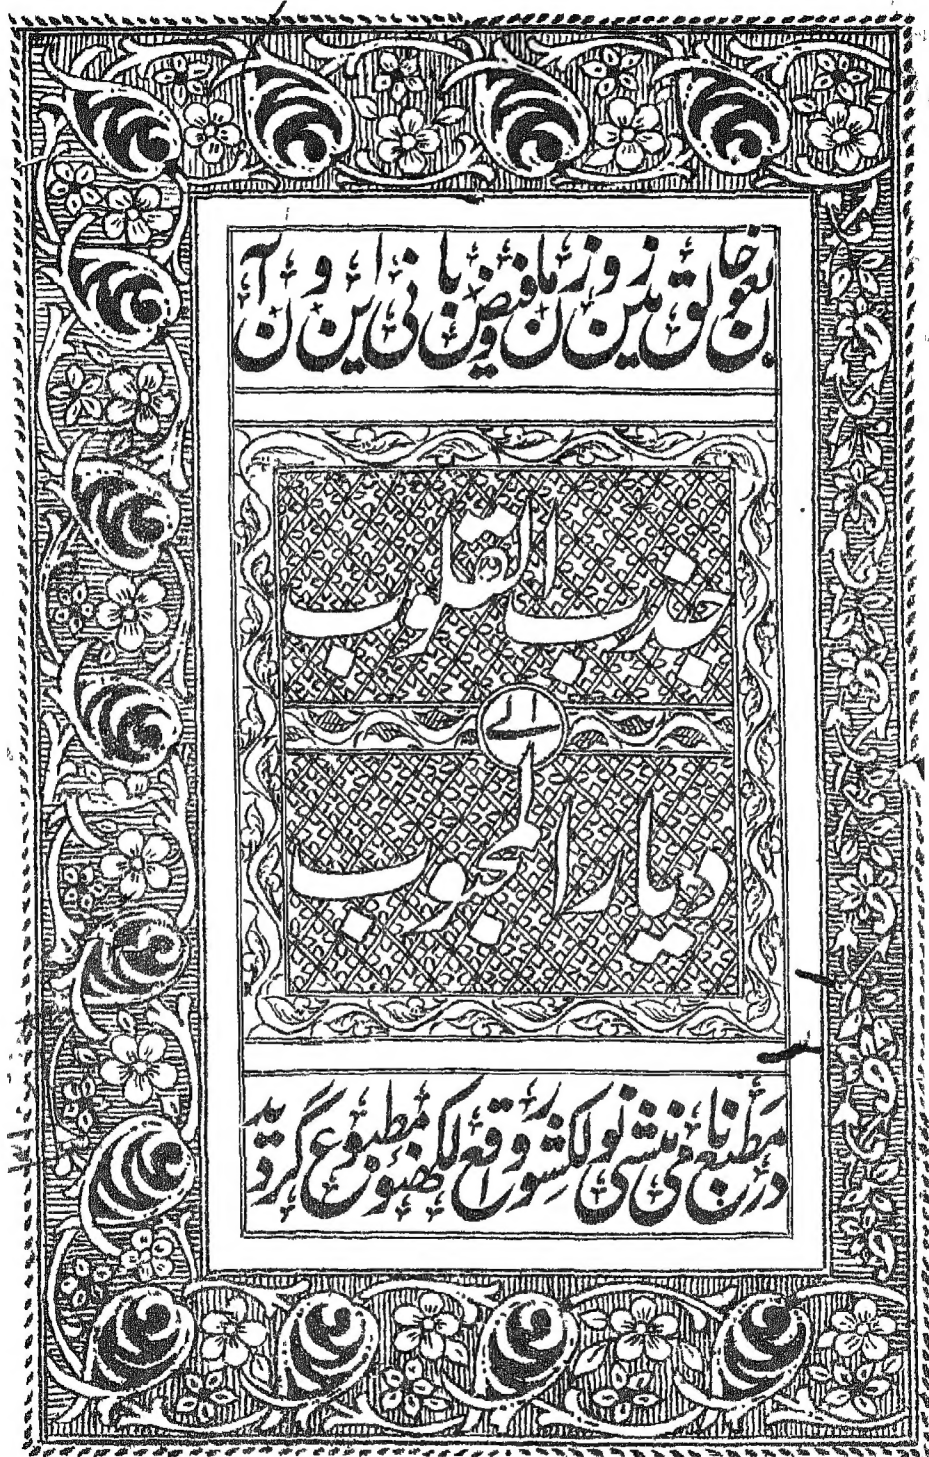 بعون خالق زمین و زمان و فیض بانی این و آن
جذب القلوب
الے
دیار المحبوب
در مطبع نامی منشی نولکشور واقع لکھنؤ مطبوع گردید